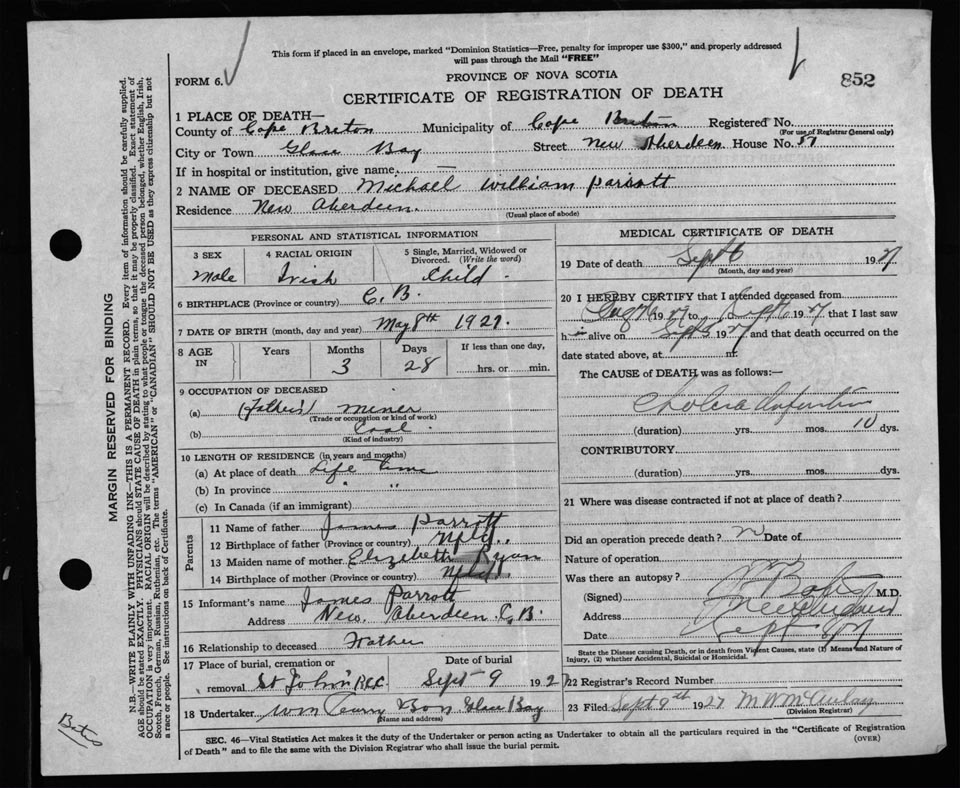 This form if placed in an envelope, marked "Dominion Statistics—Free, penalty for improper use $300," and properly addressed
will pass through the Mail "FREE"
FORM 6.
PROVINCE OF NOVA SCOTIA
852
CERTIFICATE OF REGISTRATION OF DEATH
1 PLACE OF DEATH—
County of Cape Breton Municipality of Cape Breton Registered No.
(For use of Registrar General only)
City or Town Glace Bay Street New Aberdeen House No. 57
If in hospital or institution, give name. —
2 NAME OF DECEASED Michael William Parrott
Residence New Aberdeen.
(Usual place of abode)
PERSONAL AND STATISTICAL INFORMATION
3 SEX 4 RACIAL ORIGIN 5 Single, Married, Widowed or Divorced. (Write the word)
Male Irish Child.
6 BIRTHPLACE (Province or country) C.B.
7 DATE OF BIRTH (month, day and year) May 8th 1927.
8 AGE IN Years Months Days If less than one day,
3 28 hrs. or min.
9 OCCUPATION OF DECEASED
(a) (Father's) Miner
(Trade or occupation or kind of work)
(b) Coal.
(Kind of industry)
10 LENGTH OF RESIDENCE (in years and months)
(a) At place of death Life time
(b) In province " "
(c) In Canada (if an immigrant)
Parents
11 Name of father James Parrott
12 Birthplace of father (Province or country) Nfld.
13 Maiden name of mother Elizabeth Ryan
14 Birthplace of mother (Province or country) Nfld
15 Informant's name James Parrott
Address New Aberdeen C.B.
16 Relationship to deceased Father
17 Place of burial, cremation or Date of burial
removal St John R.C.C. Sept 9 192
18 Undertaker Wm Curry Glace Bay
(Name and address)
MEDICAL CERTIFICATE OF DEATH
19 Date of death Sept 6 1927
(Month, day and year)
20 I HEREBY CERTIFY that I attended deceased from
1927 to Sept 6 1927 that I last saw
h im alive on Sept 5 1927 and that death occurred on the
date stated above, at m.
The CAUSE of DEATH was as follows:—
Cholera Infantum
(duration) yrs. mos. 10 dys.
CONTRIBUTORY
(duration) yrs. mos. dys.
21 Where was disease contracted if not at place of death?
Did an operation precede death? Date of
Nature of operation
Was there an autopsy?
(Signed) M.D.
Address New Aberdeen
Date Sept
State the Disease causing Death, or in death from Violent Causes, state (1) Means and Nature of
Injury, (2) whether Accidental, Suicidal or Homicidal.
22 Registrar's Record Number
23 Filed Sept 9th 1927
(Division Registrar)
SEC. 46—Vital Statistics Act makes it duty of the Undertaker or person acting as Undertaker to obtain all the particulars required in the "Certificate of Registration
of Death" and to file the same with the Division Registrar who shall issue the burial permit.
(OVER)
MARGIN RESERVED FOR BINDING
N.B.—WRITE PLAINLY, WITH UNFADING INK—THIS IS A PERMANENT RECORD. Every item of information should be carefully supplied.
AGE should be stated EXACTLY. PHYSICIANS should STATE CAUSE OF DEATH in plain terms, so that it may be properly classified. Exact statement of
OCCUPATION is very important. RACIAL ORIGIN will be described by stating to what people or tongue the deceased person belonged, whether English, Irish,
Scotch, French, German, Russian, Ruthenian, etc. The terms "AMERICAN" or "CANADIAN" SHOULD NOT BE USED as they express citizenship but not
a race or people. See instructions on back of Certificate.